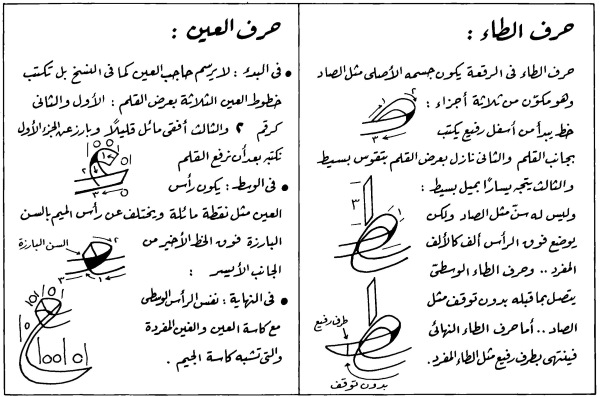 حرف الطاء :
حرف الطاء فى الرقعة يكون جسمه الأصلى مثل الصاد
وهو مكوّن من ثلاثة أجزاء :
خط يبدأ من أسفل رفيع يكتب
بجانب القلم والثانى نازل بعرض القلم بتقوس بسيط
والثالث يتجه يسارًا بميل بسيط :
وليس له سنّ مثل الصاد ولكن
يوضع فوق الرأس ألف كالألف
المفرد .. وحرف الطاء الوسطى
يتصل بما قبله بدون توقف مثل
الصاد .. أما حرف الطاء النهائى
فينتهى بطرف رفيع مثل الطاء المفرد .
٢
٣
٣
١
طرف رفيع
بدون توقف
حرف العين :
• فى البدء : لا يرسم حاجب العين كما فى النسخ بل تكتب
خطوط العين الثلاثة بعرض القلم : الأول والثانى
كرقم ٢ والثالث أفقى مائل قليلًا وبارز عن الجزء الأول
نكتبه بعد أن نرفع القلم
• فى الوسط : يكون رأس
العين مثل نقطة مائلة ويختلف عن رأس الميم بالسن
البارزة فوق الخط الأخير من
الجانب الأيسر :
• فى النهاية : نفس الرأس الوسطى
مع كاسة العين والغين المفردة
والتى تشبه كاسة الجيم .
١
٢
٣
السن البارزة
٢
٣
١